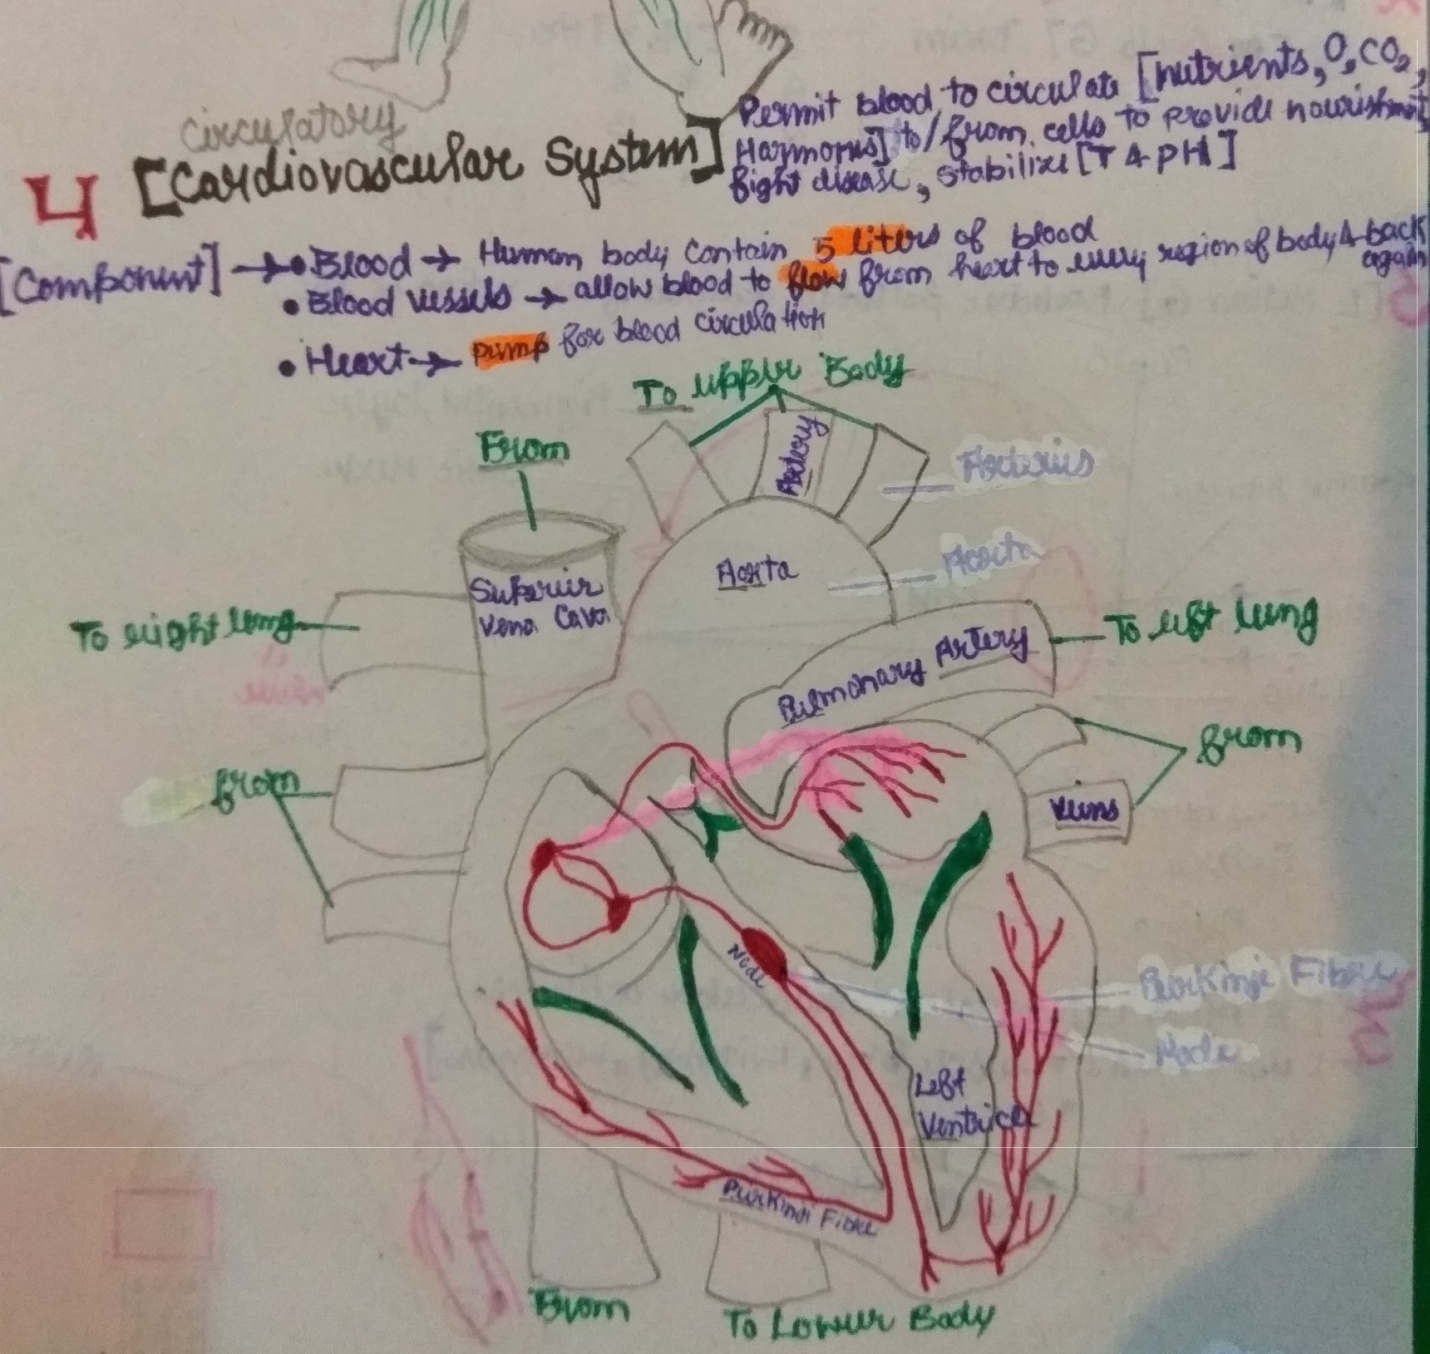 Circulatory
4 [Cardiovascular System]
Permit blood, to circulate [nutrients, O, CO2,
Harmones] to/from cells to provide nourishment,
fight disease, stabilize [T & PH]
[Component] → • Blood → Human body contain 5 liters of blood
• Blood vessels → allow blood to flow from heart to every region of body & back
again
• Heart → pump for blood circulation
To upper Body
From
Artery
Arteries
Aorta
Aorta
Superior
Vena Cava
To right lung
To left lung
Pulmonary Artery
from
from
Veins
Node
Purkinje Fibre
Node
Left
Ventricle
Purkinji Fibre
From
To Lower Body